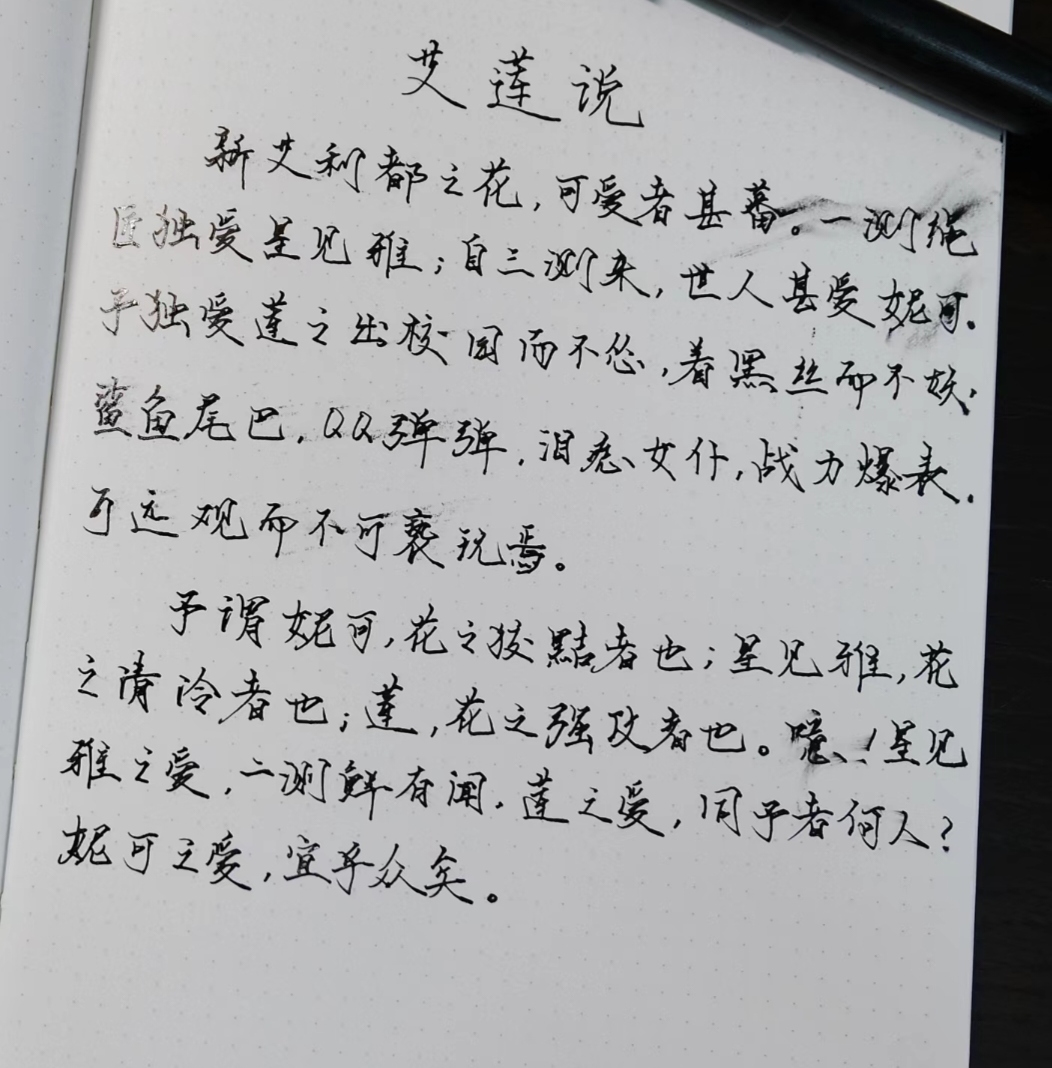 艾莲说
新艾利都之花,可爱者甚蕃。一测绳
匠独爱星见雅;自三测来,世人甚爱妮可.
予独爱莲之出校园而不怂,着黑丝而不妖;
鲨鱼尾巴,QQ弹弹,泪痣女仆,战力爆表.
可远观而不可亵玩焉。
予谓妮可,花之狡黠者也;星见雅,花
之清冷者也;莲,花之强攻者也。噫!星见
雅之爱,二测鲜有闻.莲之爱,同予者何人?
妮可之爱,宜乎众矣。